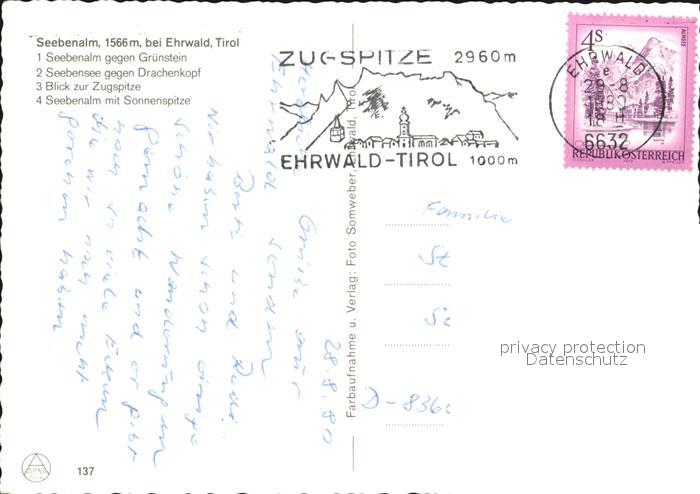 Seebenalm, 1566m, bei Ehrwald, Tirol
1 Seebenalm gegen Grünstein
2 Seebensee gegen Drachenkopf
3 Blick zur Zugspitze
4 Seebenalm mit Sonnenspitze
ZUGSPITZE 2960m
EHRWALD-TIROL 1000m
4S
ALMSEE
REPUBLIK ÖSTERREICH
EHRWALD
e
29.-8
80
18 H
6632
28.8.80
Grüsse aus
Ehrwald senden
Berti und Rudi.
Wir haben schon einige
schöne Wanderungen
gemacht und es gibt
noch so viele Ecken
die wir noch nicht
gesehen haben
Farbaufnahme u. Verlag: Foto Somweber, Ehrwald, Tirol
Familie
St
D-836
privacy protection
Datenschutz
137